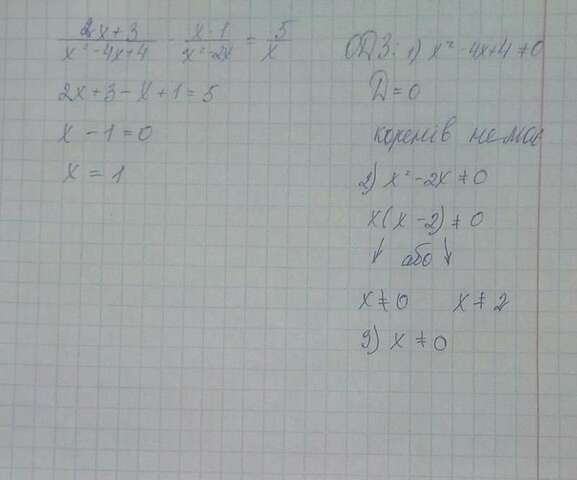 (2x+3)/(x²-4x+4) - (x-1)/(x²-2x) = 5/x
2x+3-x+1=5
x-1=0
x=1
ОДЗ: 1) x²-4x+4≠0
D=0
коренів немає
2) x²-2x≠0
x(x-2)≠0
↓ або ↓
x≠0 x≠2
3) x≠0